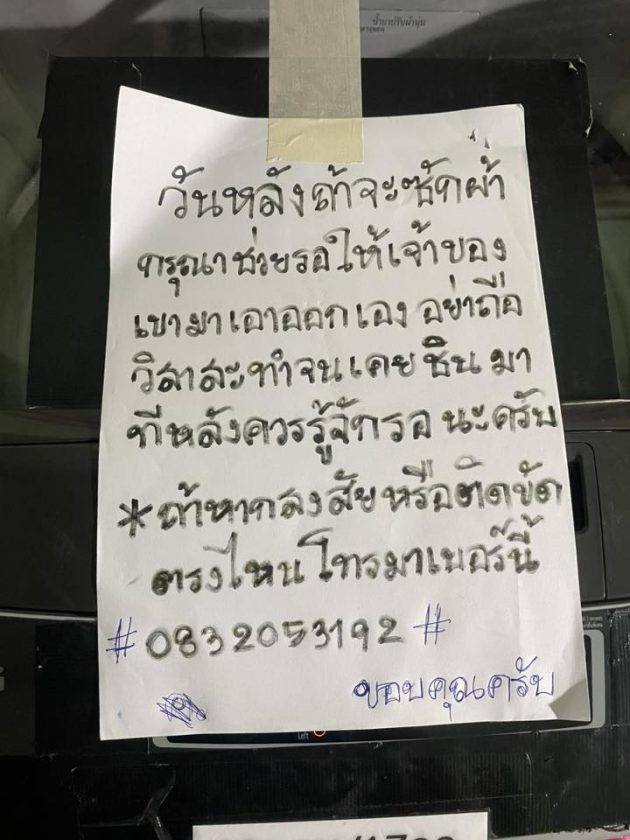 น้ำยาปรับผ้านุ่ม
วันหลังถ้าจะซักผ้า
กรุณาช่วยรอให้เจ้าของ
เขามาเอาออกเอง อย่าถือ
วิสาสะทำจนเคยชิน มา
ทีหลังควรรู้จักรอ นะครับ
*ถ้าหากสงสัยหรือติดขัด
ตรงไหน โทรมาเบอร์นี้
# 0832053192 #
ขอบคุณครับ
Left